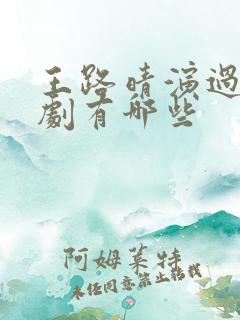 王路晴演過
劇有哪些
阿姆萊特
未经同意禁止转载